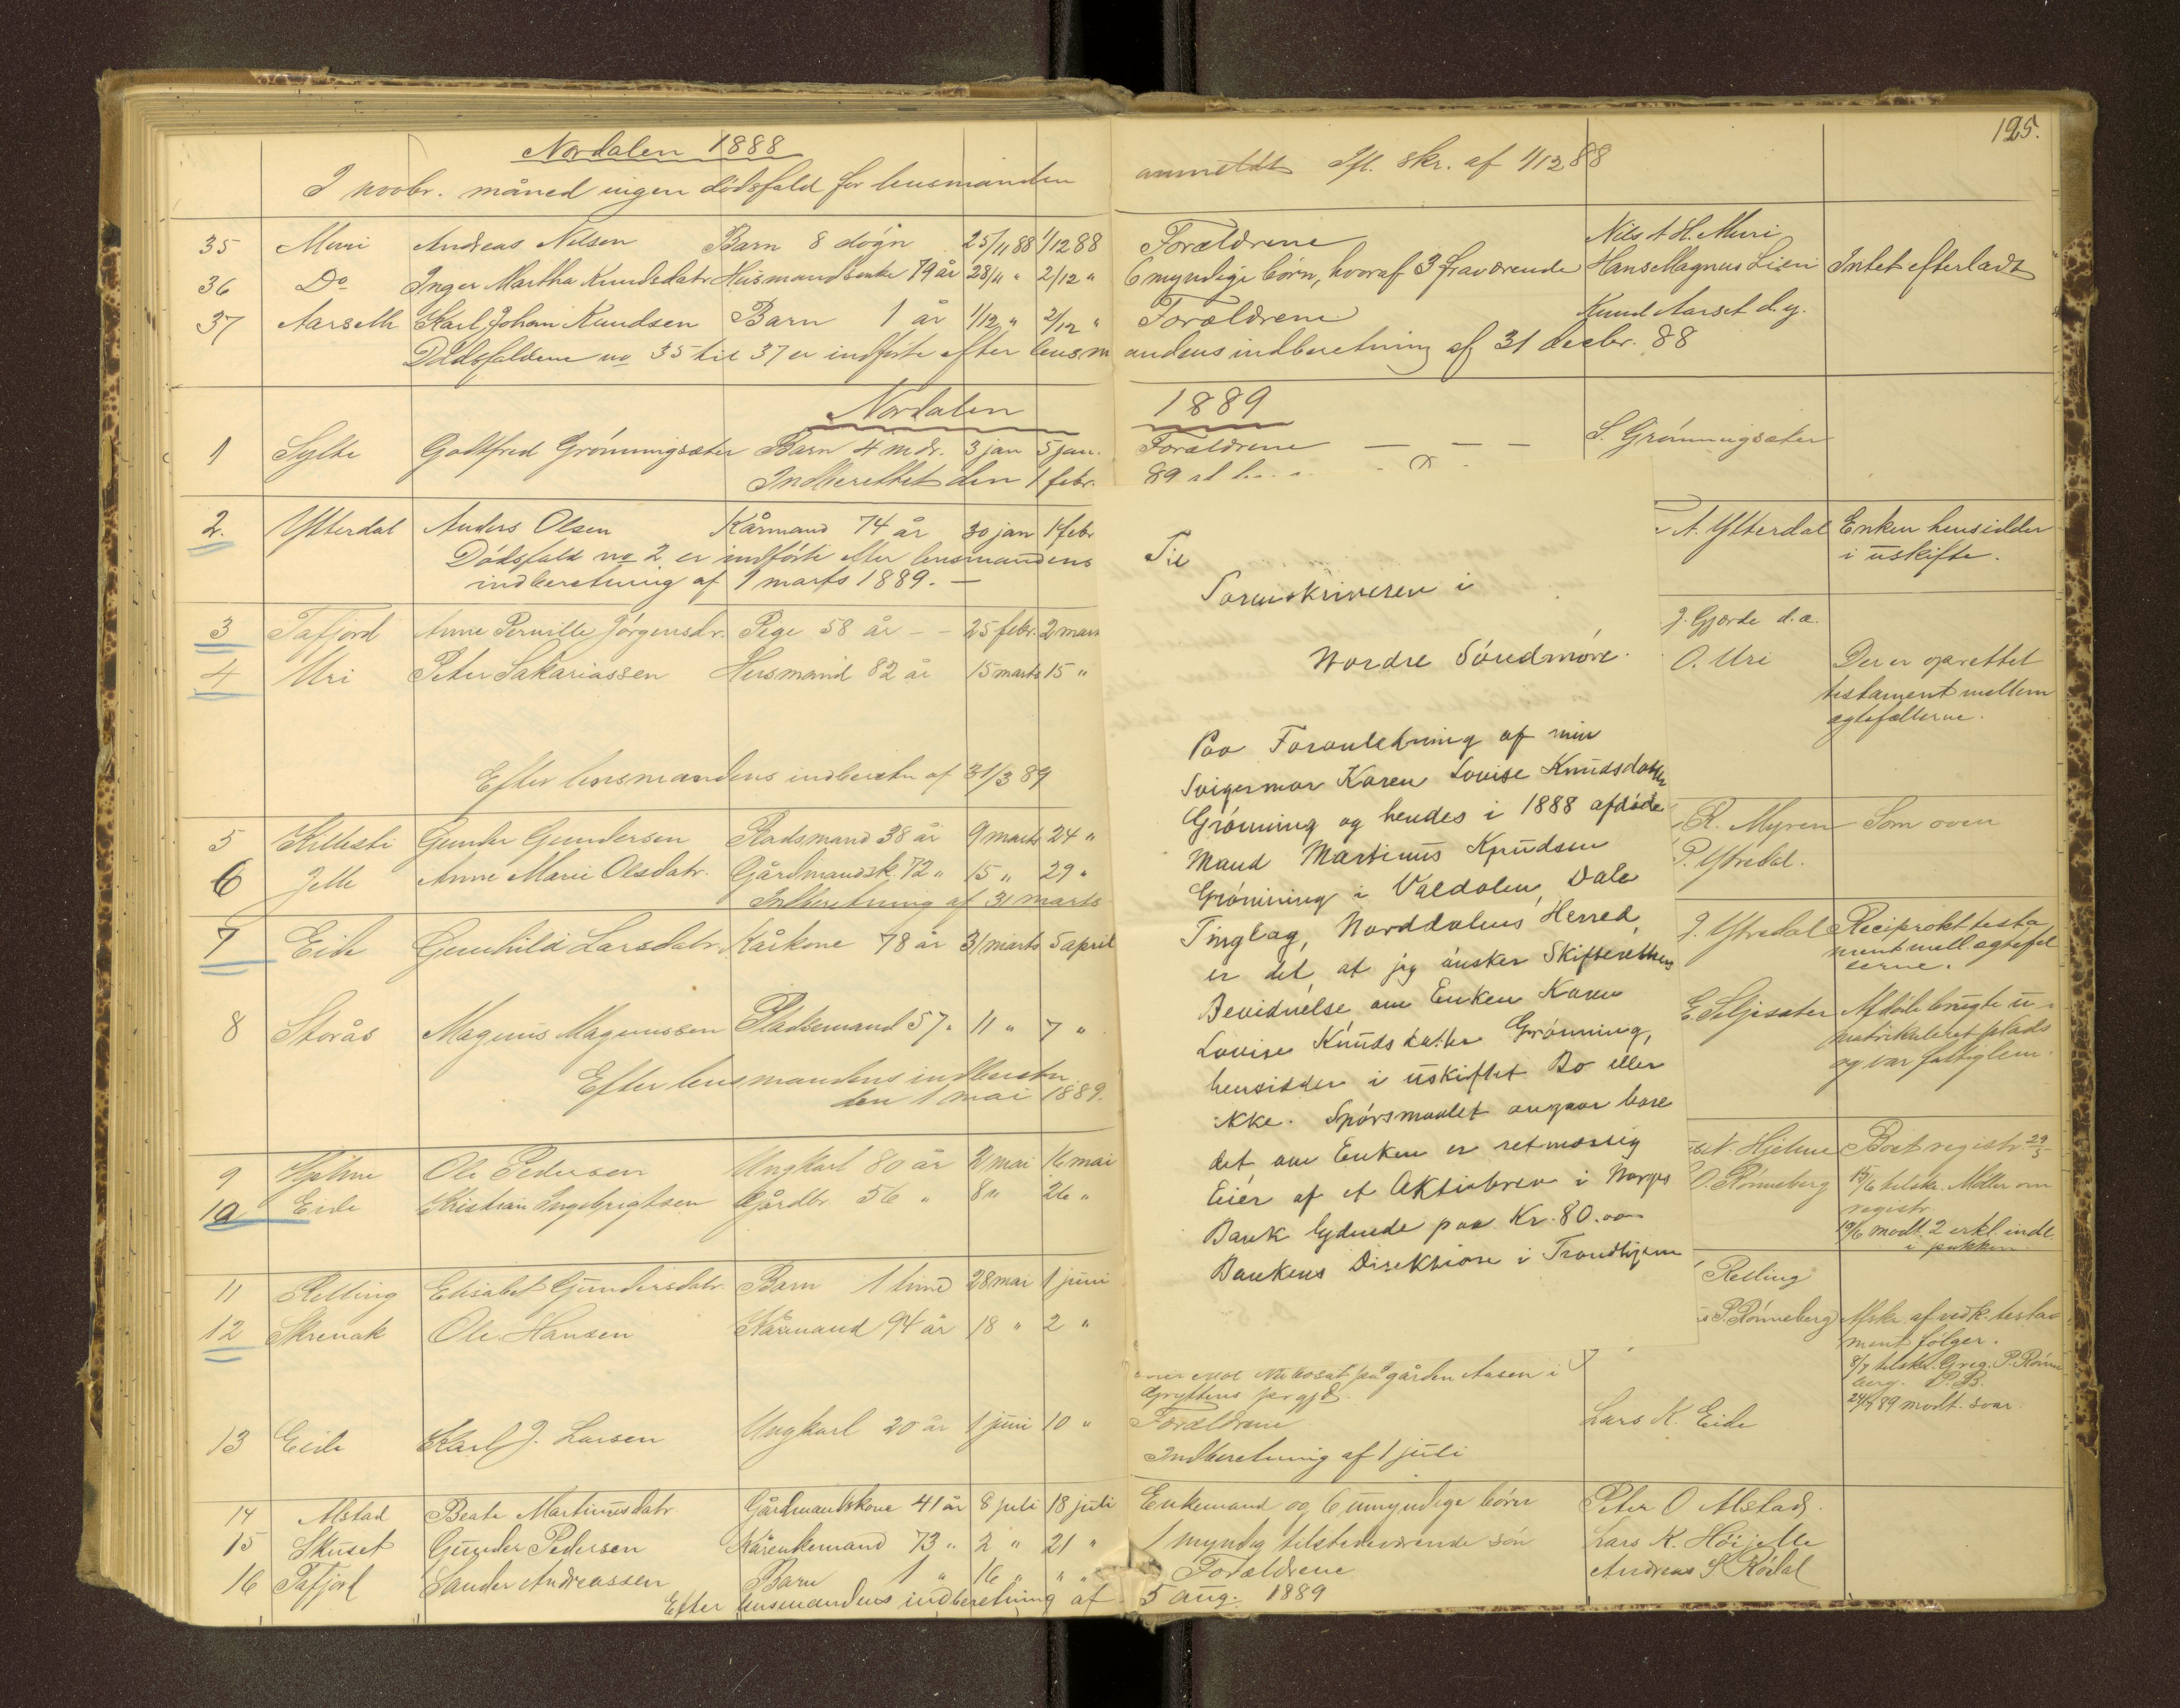 125.
Nordalen 1888
I novbr. måned ingen dødsfald for lensmanden anmeldt Ifl. skr. af 1/12 88
35 Muri Andreas Nilsen Barn 8 døgn 25/11 88 1/12 88 Forældrene Nils A H. Muri
36 Do Inger Martha Knudsdatr Husmandsenke 79 år 28/11 " 2/12 " 6 myndige børn, hvoraf 3 fraværende Hans Magnus Lien Intet efterladt
37 Aarseth Karl Johan Knudsen Barn 1 år 1/12 " 2/12 " Forældrene Knud Aarset d.y.
Dødsfaldene no 35 til 37 er indførte efter lensmandens indberetning af 31 decbr. 88
Nordalen 1889
1 Sylte Godtfred Grønningsæter Barn 4 mdr. 3 jan 5 jan. Forældrene — — — S. Grønningsæter
Indberettet den 1 febr. 89
2. Ytterdal Anders Olsen Kårmand 74 år 30 jan 1 febr A. Ytterdal Enken hensidder
i uskifte.
Dødsfald no 2 er indførte efter lensmandens
indberetning af 1 marts 1889. —
3 Tafjord Anne Pernille Jørgensdr. Pege 58 år - - 25 febr. 2 mars J. Gjorde d.æ.
4 Uri Peter Sakariassen Husmand 82 år 15 marts 15 " O. Uri Der er oprettet
testament mellem
ægtefællerne.
Efter lensmandens indberetn af 31/3 89
5 Killisti Gunder Gundersen Pladsmand 38 år 9 marts 24 " R. Myren Som oven
6 Jelle Anne Marie Olsdatr. Gårdmandsk. 72 " 15 " 29 " P. Ytredal.
Indberetning af 31 marts
7 Eide Gunhild Larsdatr. Kårkone 78 år 31 marts 5 april J. Ytredal Reciprokt testa
ment mell. ægtefæl
lerne.
8 Storås Magnus Magnussen Pladsemand 57 " 11 " 7 " E. Seljesæter Afdøde brugte u-
matrikuleret plads
og var fattiglem.
Efter lensmandens indberetn
den 1 mai 1889.
9 Hjelme Ole Pedersen Ungkarl 80 år 2 mai 16 mai N. Hjelme Boet registr 29/5
10 Eide Kristian Ingebrigtsen Gårdbr. 56 " 8 " 26 " O. Rønneberg 15/6 tilskr. Møller om
registr.
19/6 modt. 2 erkl. indl.
i pakken
11 Relling Elisabet Gundersdatr. Barn 1 time 28 mai 1 juni Relling
12 Skrenak Ole Hansen Kårmand 94 år 18 " 2 " P. Rønneberg Afskr. af vedk. testa
ment følger.
8/7 tilskr. Greg. P. Rønne
berg. P.B.
24/7 89 modt. svar
på gården Aasen i
Gryttens prgjd.
13 Eide Karl J. Larsen Ungkarl 20 år 1 juni 10 " Forældrene Lars K. Eide
Indberetning af 1 juli
14 Alstad Beate Martinusdatr Gårdmandskone 41 år 8 juli 18 juli Enkemand og 6 umyndige børn Peter O Alstad.
15 Skuset Gunder Pedersen Kårenkemand 73 " 2 " 21 " 1 myndig tilstedeværende søn Lars K. Höijelle
16 Tafjord Sander Andreassen Barn 1 " 16 " " " Forældrene Andreas S Rødal
Efter lensmandens indberetning af 5 aug. 1889
Til
Sorenskriveren i
Nordre Söndmöre.
Paa Foranledning af min
Svigermor Karen Lovise Knudsdatter
Grönning og hendes i 1888 afdöde
Mand Martinus Knudsen
Grönning i Valdalen, Dale
Tinglag, Norddalens Herred,
er det, at jeg önsker Skifterettens
Bevidnelse om Enken Karen
Lovise Knudsdatter Grönning,
hensidder i uskiftet Bo eller
ikke. Spörsmaalet angaar bare
det om Enken er retmæssig
Eiér af et Aktiebrev i Norges
Bank lydende paa Kr. 80.00
Bankens Direktion i Trondhjem